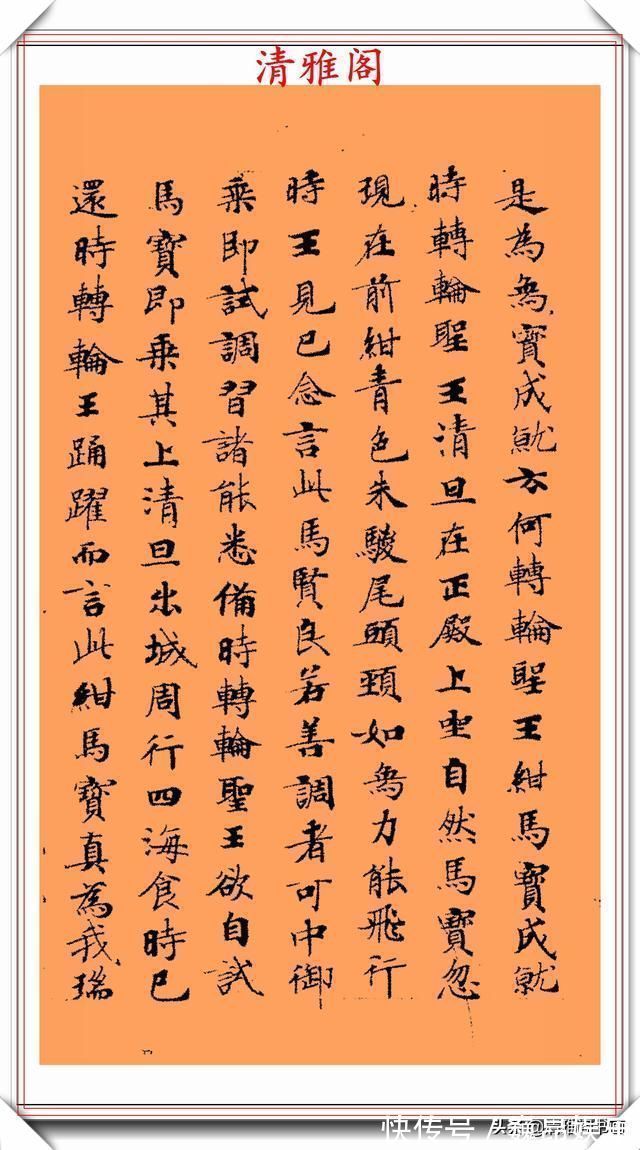 清雅阁
是為象寶成就云何轉輪聖王紺馬寶成就
時轉輪聖王清旦在正殿上坐自然馬寶忽
現在前紺青色朱駿尾頭頸如象力能飛行
時王見已念言此馬賢良若善調者可中御
乘即試調習諸能悉備時轉輪聖王欲自試
馬寶即乘其上清旦出城周行四海食時已
還時轉輪王踊躍而言此紺馬寶真為我瑞
快传号 /